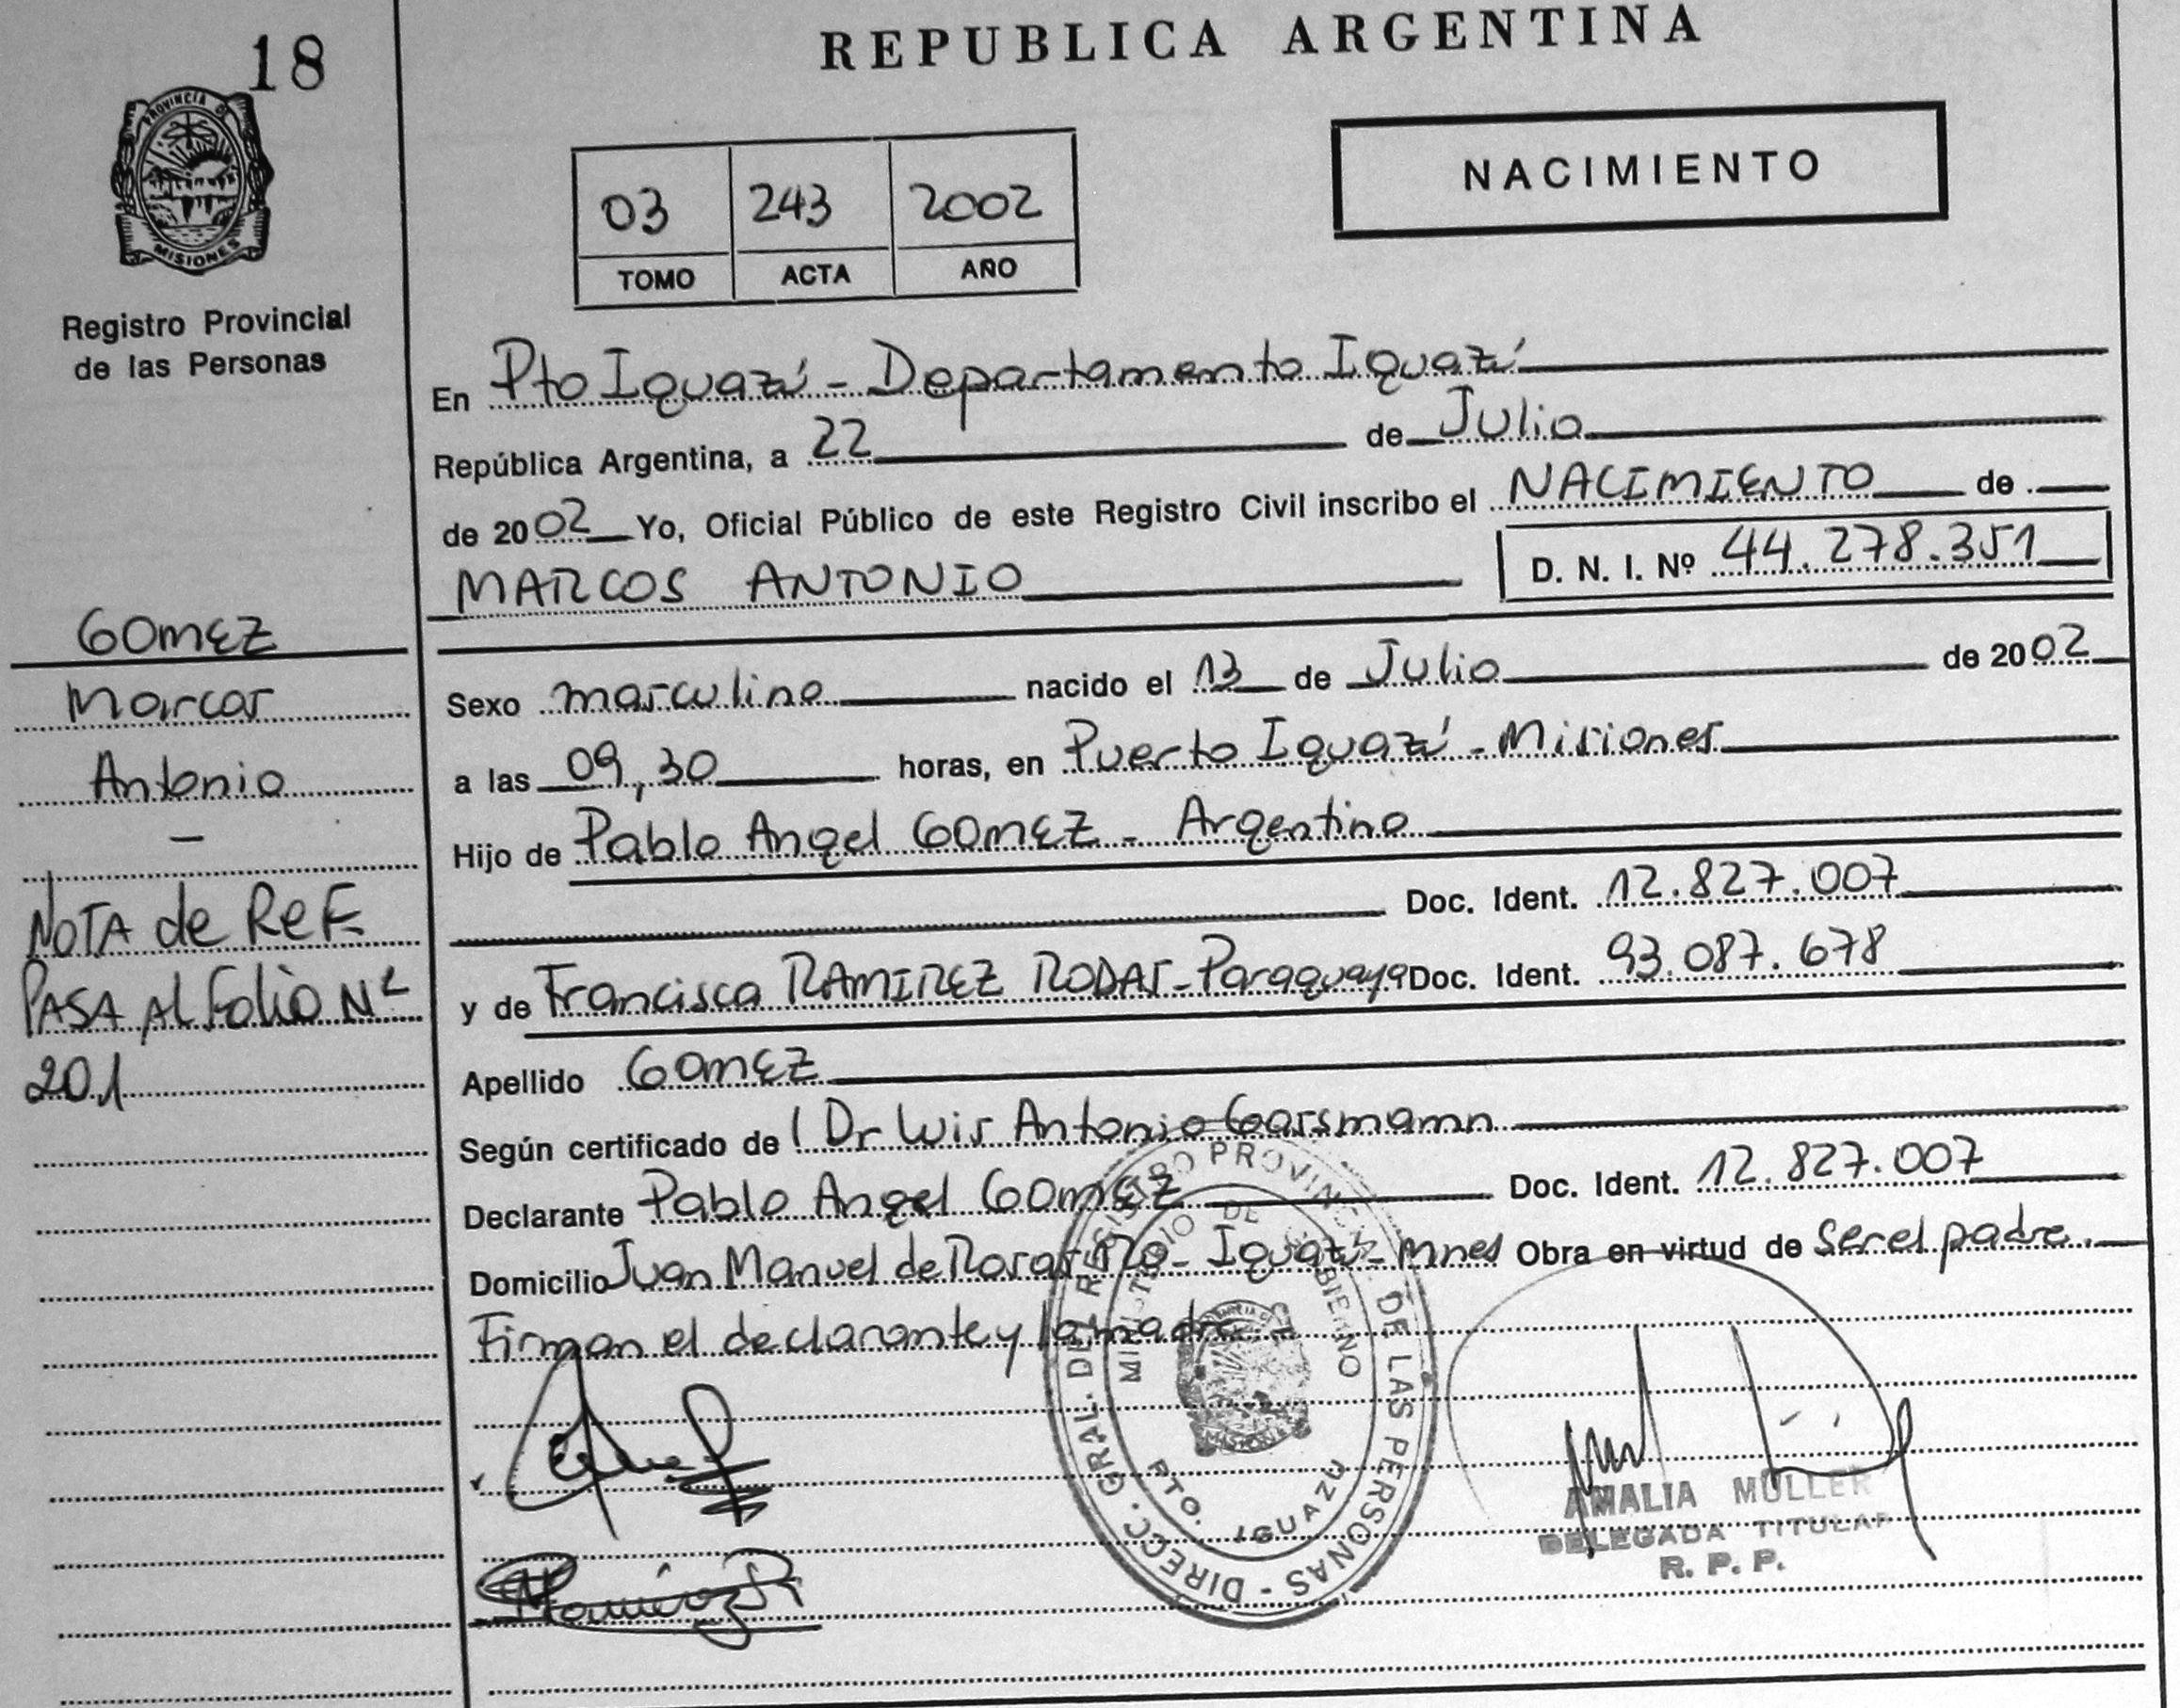 REPUBLICA ARGENTINA
18
PROVINCIA DE
MISIONES
Registro Provincial
de las Personas
03 243 2002
TOMO ACTA AÑO
NACIMIENTO
En Pto Iguazú - Departamento Iguazú
República Argentina, a 22 de Julio
de 2002 Yo, Oficial Público de este Registro Civil inscribo el NACIMIENTO de
MARCOS ANTONIO D. N. I. Nº 44.278.351
GOMEZ
Marcos
Antonio
-
NOTA de REF.
PASA Al Folio Nº
201
Sexo masculino nacido el 13 de Julio de 2002
a las 09,30 horas, en Puerto Iguazú - Misiones
Hijo de Pablo Angel GOMEZ - Argentino
Doc. Ident. 12.827.007
y de Francisca RAMIREZ RODAS - Paraguaya Doc. Ident. 93.087.678
Apellido GOMEZ
Según certificado de Dr Luis Antonio
Declarante Pablo Angel GOMEZ Doc. Ident. 12.827.007
Domicilio Juan Manuel de Rosas - Iguazú - Mnes Obra en virtud de ser el padre.
Firman el declarante y la madre.
DIRECC. GRAL. DEL REGISTRO PROVINCIAL DE LAS PERSONAS -
MINISTERIO DE GOBIERNO
PTO. IGUAZU
MISIONES
Ramírez R
AMALIA MULLER
DELEGADA TITULAR
R. P. P.